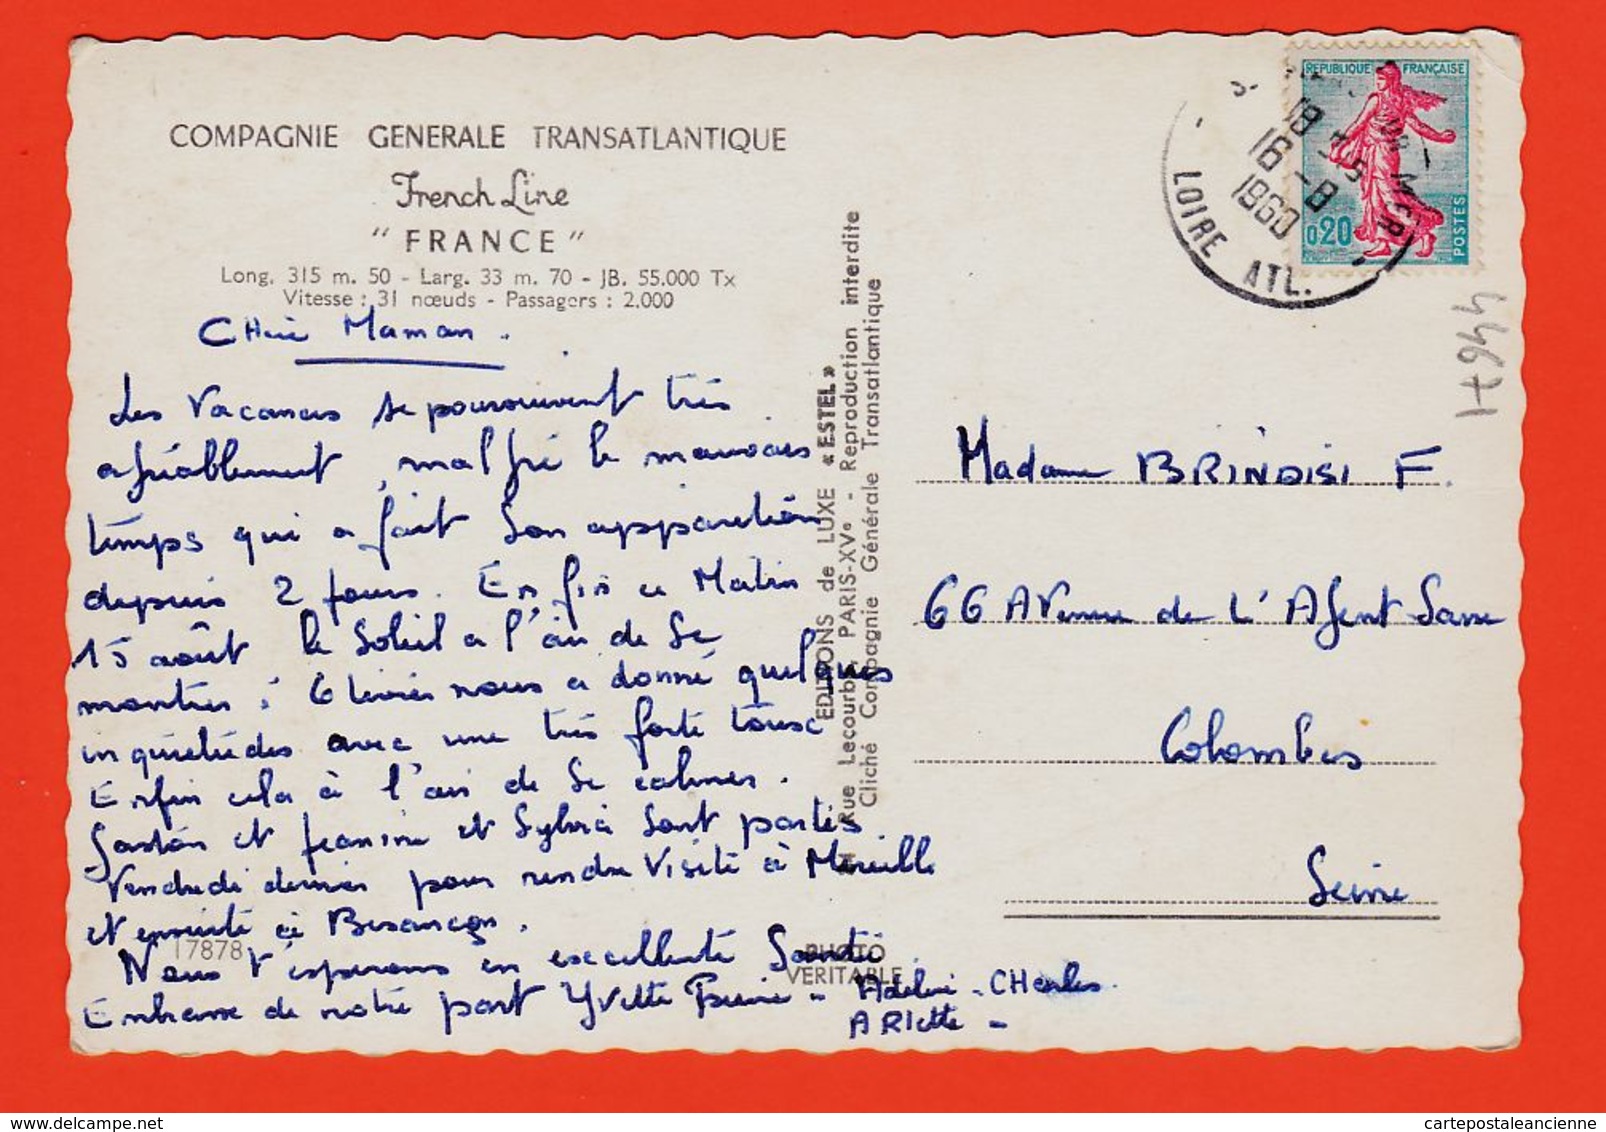 COMPAGNIE GENERALE TRANSATLANTIQUE
French Line
"FRANCE"
Long. 315 m. 50 - Larg. 33 m. 70 - JB. 55.000 Tx
Vitesse : 31 nœuds - Passagers : 2.000
Chère Maman.
Les vacances se poursuivent très
agréablement, malgré le mauvais
temps qui a fait son apparition
depuis 2 jours. Enfin ce Matin
15 août le soleil a l'air de se
montrer; Olivier nous a donné quelques
inquiétudes avec une très forte toux
Enfin cela à l'air de se calmer.
Gaston et Jeanine et Sylvia sont partis
Vendredi dernier pour rendre visite à Mireille
et ensuite à Besançon.
Nous t'espérons en excellente Santé
Embrasse de notre part Yvette - Adeline - CHarles
ARlette -
17878
PHOTO
VERITABLE
EDITIONS de LUXE «ESTEL»
Rue Lecourbe PARIS-XVe - Reproduction interdite
Cliché Compagnie Générale Transatlantique
REPUBLIQUE FRANÇAISE
0,20
POSTES
18 H 15
16 - 8
1960
LOIRE ATL.
44671
Madame BRINDISI F.
66 Avenue de L'Agent Sarre
Colombes
Seine
cartepostaleancienne